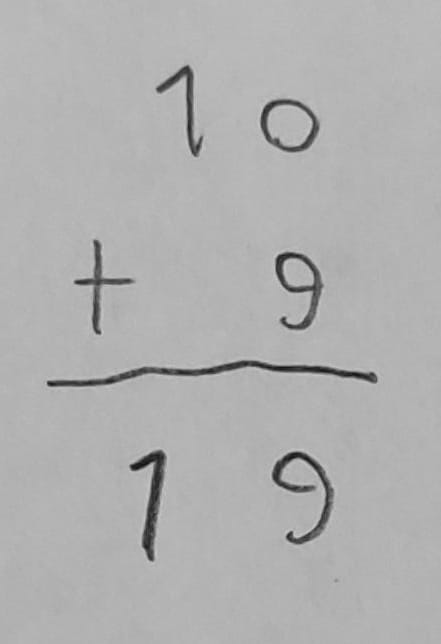 10
+ 9
19